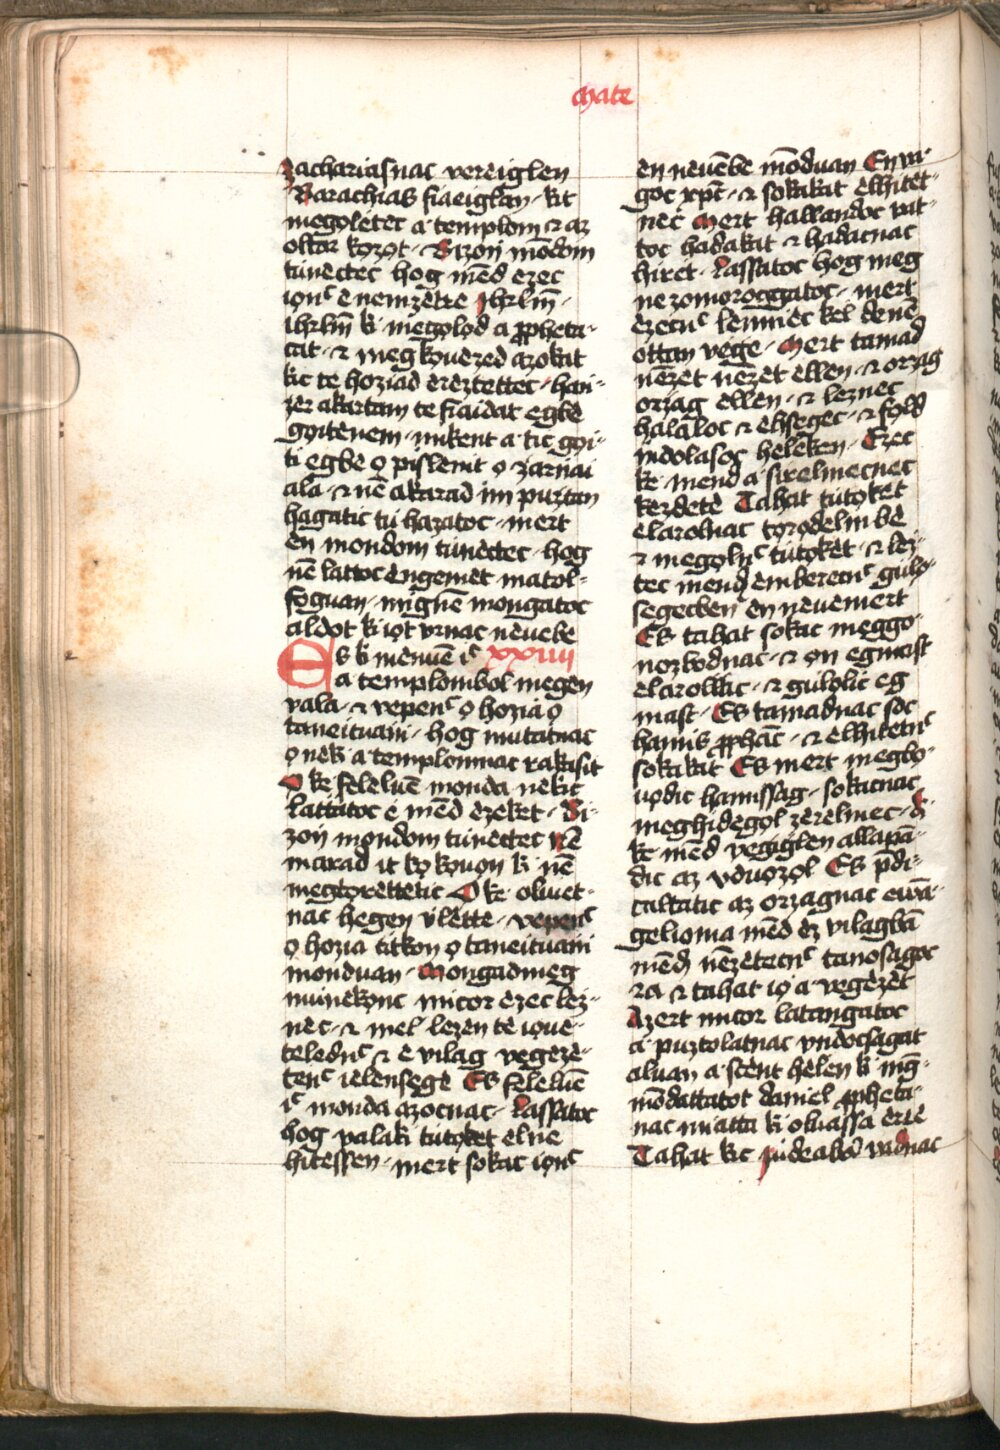 mate
zachariasnac vereiglen
Barachias fiaeiglen · kit
megoletec a templom ⁊ az
oltar kozot · Bizon mōdom
tunectec hog mēd ezec
ionc̄ e nemzètre Jhrlm̄ ·
ihrlm̄ ki megolod a ꝓpheta-
cat · ⁊ megkouezed azokat
kic te hoziad erèztettec · hani-
zer akartam te fiaidat egbè
goitenem · mikent a tic goi-
ti egbè o pislenit o zarnai
ala · ⁊ nē akarad im puztan
hagatic tu hazatoc · mert
en mondom tunectec · hog
nē lattoc engemet matol-
foguan · mignē mongatoc
aldot ki iot vrnac neuebe
Es ki menuē ic̄ xxiiii
a templombol megen
vala · ⁊ vepenc̄ o hozia o
taneituani · hog mutatnac
o neki a templomnac rakasit
O ke felèluē monda nekic
Lattatoc e mēd èzeket · Bi-
zon mondom tunectec nē
marad it ko kouon ki nē
megtorettetic O ke oliuet-
nac hegen vlètte · vepenc̄
o hozia titkon o taneituani
monduan · Mongadmeg
muinekonc micor ezec lez-
nec · ⁊ mel lezen te ioue-
telednc̄ ⁊ e vilag vegeze-
tenc̄ ielensege Es feleluē
ic̄ monda azocnac · Lassatoc
hog valaki tutoket elne
hitessen · mert sokac ionc̄
en neuēbe mōduan En va-
goc xpc̄ · ⁊ sokakat elhitèt-
nec Mert hallandoc vat-
toc hadakat ⁊ hadacnac
hiret · Lassatoc hog meg
ne zomoroggatoc · mert
èzecnc̄ lenniec kel denē
ottan vege · Mert tamad
nēzet nēzet ellen · ⁊ orzag
orzag ellen · ⁊ leznec
halaloc ⁊ ehsegec · ⁊ fold
indolasoc heleken · Ezec
ke mend a sirelmecnec
kezdetè Tahat tutoket
elarolnac torodelm be
⁊ megolnc̄ tutoket · ⁊ lez-
tec mend emberecnc̄ gulo-
segecben en neuemert
Es tahat sokac meggo-
nozbodnac · ⁊ on egmast
elarollic · ⁊ gulolic eg
mast · Es tamadnac soc
hamis ꝓphac̄ · ⁊ elhitetnc̄
sokakat Es mert megbo-
uodic hamissag · sokacnac
meghidegol zerelmec · ki
ke mēd vegiglen allapa-
dic az vduozol Es pdi-
caltatic az orzagnac ewā-
gelioma mēd èz vilagbā
mēd nēzètecnc̄ tanosagoc
ra ⁊ tahat io a vegèzèt
Azert micor latangatoc
a puztolatnac vndocsagat
aluan a scent helen ki mḡ-
mōdattatot daniel ꝓpheta-
nac miatta ki oluassa erte
Tahat kic Judeabā vadnac